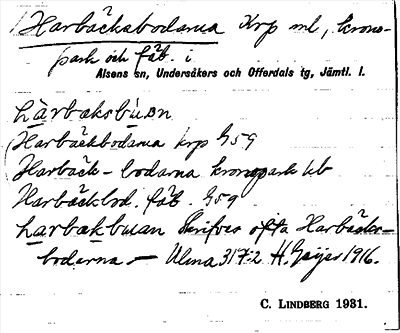 Harbäcksbodarna Krp ml, krono-
park och fäb. i
Alsens sn, Undersåkers och Offerdals tg, Jämtl. l.
hàrbæksbùɷn
Harbäckbodarna krp G59
Harbäck-bodarna kronopark kb
Harbäckbod. fäb. G59
harbækbuan Skrifves ofta Harbäcks-
bodarna — Ulma 317:2 H. Geijer 1916.
C. LINDBERG 1931.